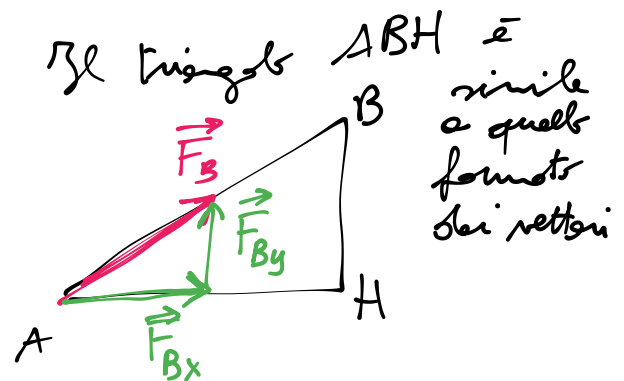 Il triangolo ABH è
simile
a quello
formato
dai vettori
B
F_B
F_By
F_Bx
A
H